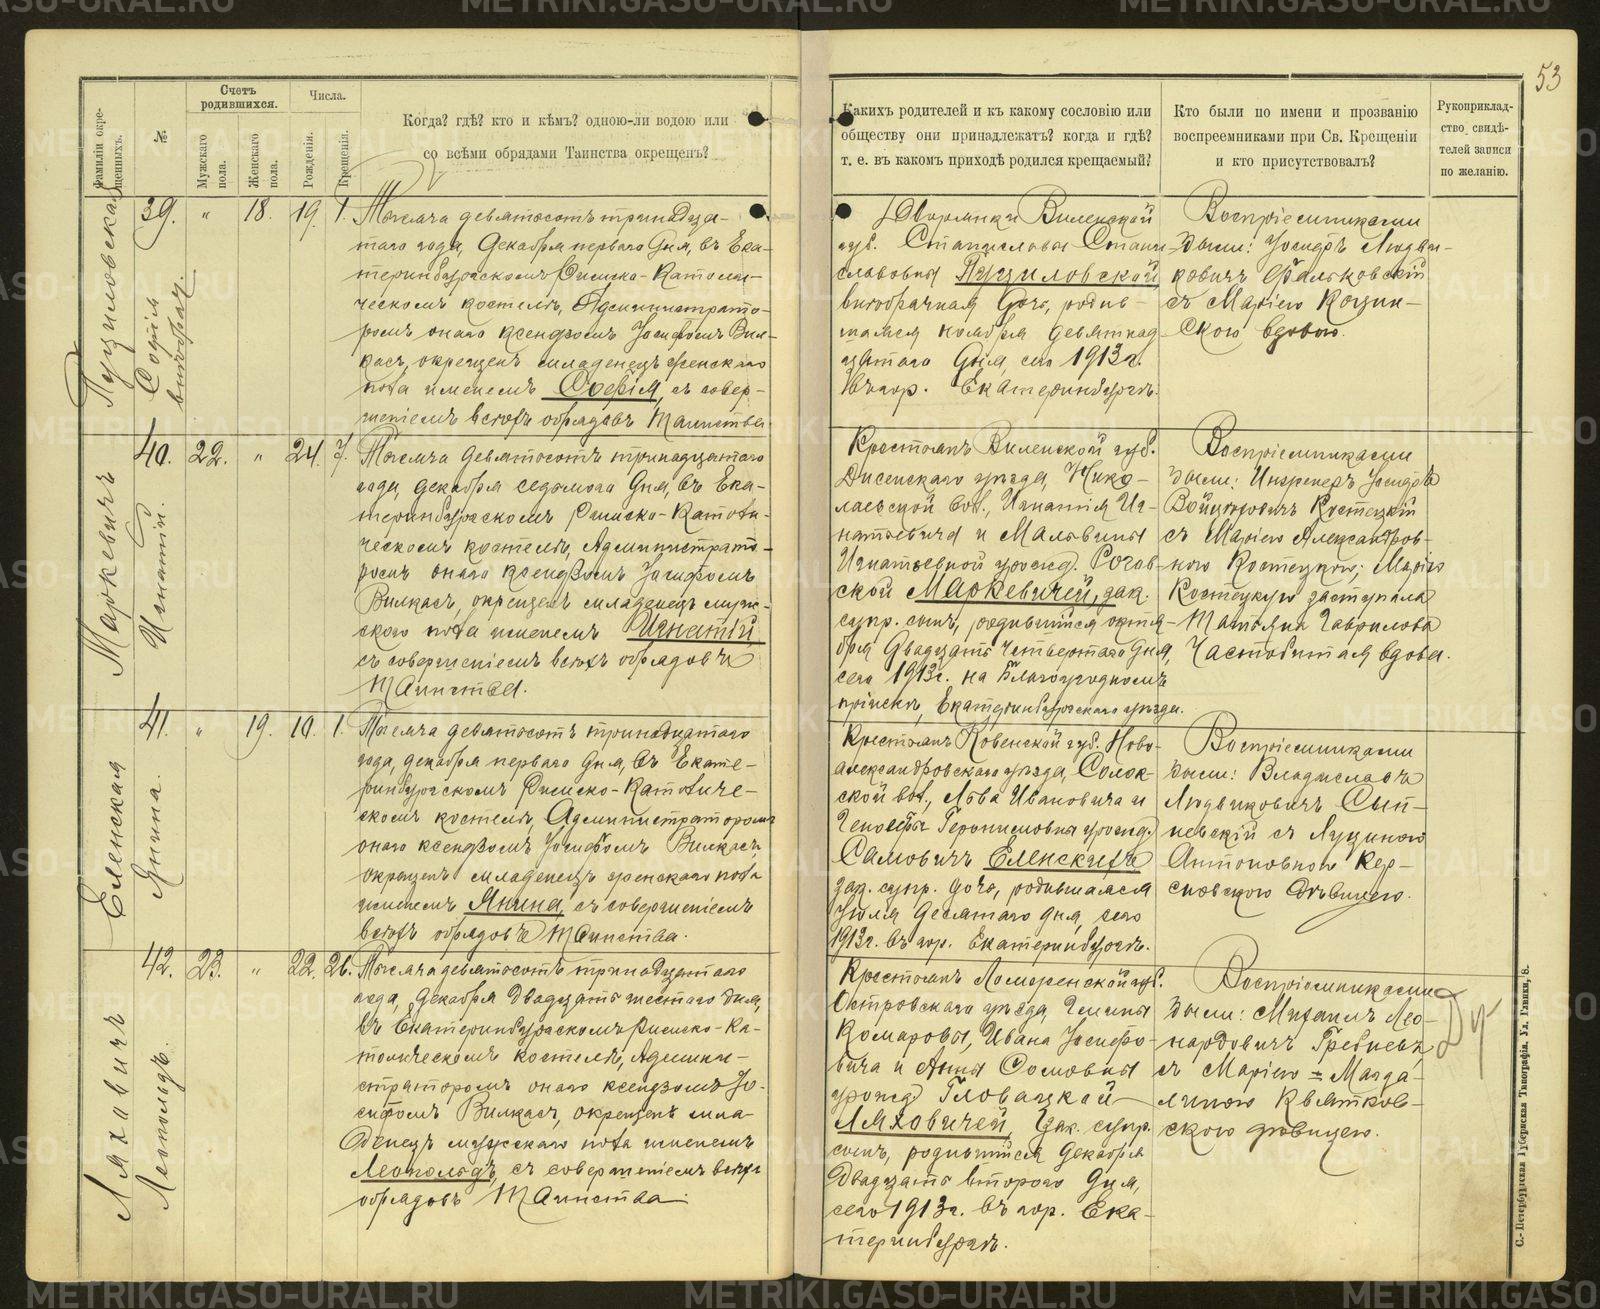 53
Фамиліи окре-
щенныхъ.
№.
Счетъ
родившихся.
Мужскаго
пола.
Женскаго
пола.
Числа.
Рожденія.
Крещенія.
Когда? гдѣ? кто и кѣмъ? одною-ли водою или
со всѣми обрядами Таинства окрещенъ?
Какихъ родителей и къ какому сословію или
обществу они принадлежатъ? когда и гдѣ?
т. е. въ какомъ приходѣ родился крещаемый?
Кто были по имени и прозванію
воспреемниками при Св. Крещеніи
и кто присутствовалъ?
Рукоприклад-
ство свидѣ-
телей записи
по желанію.
Пуциловская
Софія
внѣбрач.
39. " 18. 19. 1.
Тысяча девятьсотъ тринадца-
таго года, Декабря перваго дня, въ Ека-
теринбургскомъ Римско-Католи-
ческомъ костелѣ, Администрато-
ромъ онаго ксендзомъ Іосифомъ Вил-
касъ, окрещенъ младенецъ женскаго
пола именемъ Софія, съ совер-
шеніемъ всѣхъ обрядовъ Таинства.
Дворянки Виленской
губ. Станиславы Стани-
славовны Пуциловской
внѣбрачная дочь, родив-
шаяся ноября девятнад-
цатаго дня, сего 1913 г.
въ гор. Екатеринбургѣ.
Воспріемниками
были: Іосифъ Людви-
ковичъ Фальковскій
съ Маріею Коцин-
скою вдовою.
Маркевичъ
Игнатій.
40. 22. " 24. 7.
Тысяча девятьсотъ тринадцатаго
года, декабря седьмого дня, въ Ека-
теринбургскомъ Римско-Католи-
ческомъ костелѣ, Администрато-
ромъ онаго ксендзомъ Іосифомъ
Вилкасъ, окрещенъ младенецъ муж-
ского пола именемъ Игнатій
съ совершеніемъ всѣхъ обрядовъ
Таинства.
Крестьянъ Виленской губ.
Дисенскаго уѣзда, Нико-
лаевской вол., Игнатія Иг-
натьевича и Мальвины
Игнатьевной урожд. Рогов-
ской Маркевичей, зак.
супр. сынъ, родившійся октя-
бря двадцать четвертаго дня,
сего 1913 г. на Благоугодномъ
пріискѣ, Екатеринбургскаго уѣзда.
Воспріемниками
были: Инженеръ Іосифъ
Войцѣховичъ Костецкій
съ Маріею Александров-
ною Костецкою; Марію
Костецкую заступала
Татьяна Гаврилова
вдова.
Еленская
Янина.
41. " 19. 10. 1.
Тысяча девятьсотъ тринадцатаго
года, декабря перваго дня, въ Екате-
ринбургскомъ Римско-Католиче-
скомъ костелѣ, Администраторомъ
онаго ксендзомъ Іосифомъ Вилкасъ,
окрещенъ младенецъ женскаго пола
именемъ Янина, съ совершеніемъ
всѣхъ обрядовъ Таинства.
Крестьянъ Ковенской губ. Ново-
александровскаго уѣзда, Солок-
ской вол., Льва Ивановича и
Геронимовны урожд.
Самовичъ Еленскихъ
зак. супр. дочь, родившаяся
Іюля десятаго дня, сего
1913 г. въ гор. Екатеринбургѣ.
Воспріемниками
были: Владиславъ
Людвиковичъ Сып-
невскій съ Луциною
Антоновною Кер-
сновскою дѣвицею.
Ляховичъ
Леопольдъ.
42. 23. " 22. 26.
Тысяча девятьсотъ тринадцатаго
года, декабря двадцать шестаго дня,
въ Екатеринбургскомъ Римско-Ка-
толическомъ костелѣ, Админи-
страторомъ онаго ксендзомъ Іо-
сифомъ Вилкасъ, окрещенъ мла-
денецъ мужскаго пола именемъ
Леопольдъ, съ совершеніемъ всѣхъ
обрядовъ Таинства.
Крестьянъ Ломженской губ.
Островскаго уѣзда, Гмины
Комаровы, Ивана Іосифо-
вича и Анны
урожд Гловацкой
Ляховичей, зак. супр.
сынъ, родившійся Декабря
двадцать второго дня,
сего 1913 г. въ гор. Ека-
теринбургѣ.
Воспріемниками
были: Михаилъ Лео-
нардовичъ
съ Маріею = Магда-
линою Квятков-
скою дѣвицею.
С.-Петербургская Губернская Типографія. Ул. Глинки, 8.
METRIKI.GASO-URAL.RU